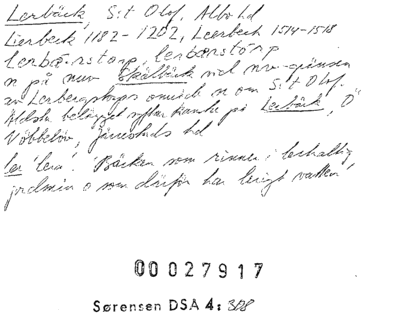 Lerbäck, S:t Olof, Albo hd
Lierbeck 1182-1202, Leerbech 1514-1518
lerbæ·rstorp, lerbærstorp
n på nuv Skålbäck vid nv-gränsen
av Lerbergstorps område n om S:t Olof.
Äldsta belägget syftar kanske på Lerbäck, Ö
Vöbbelöv, Järrestads hd
ler 'lera'. 'Bäcken som rinner i lerhaltig
jordmån o som därför har lerigt vatten'
00027917
Sørensen DSA 4: 308